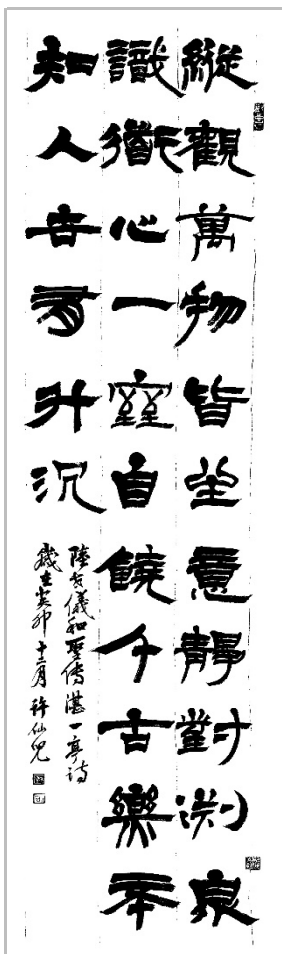 縱觀萬物皆生意靜對淵泉
識道心一室自饒千古樂不
知人世有升沉
陸文儀和聖傳湛一亭詩
歲在癸卯十二月許仙兒